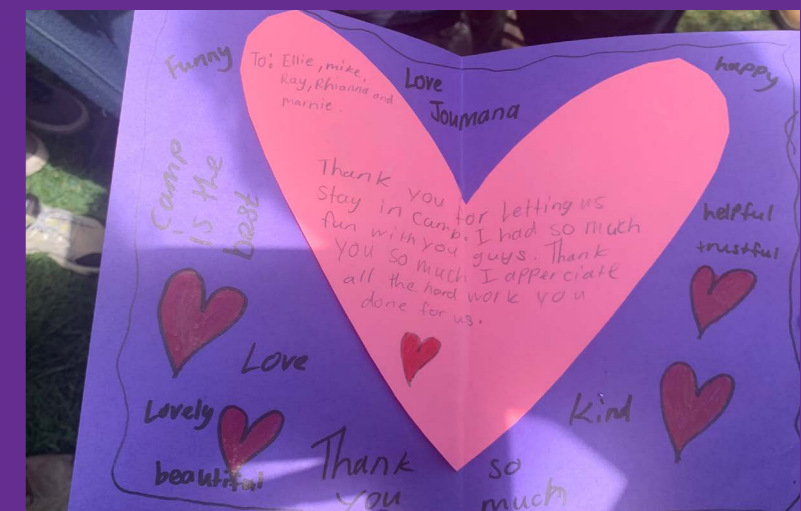 Funny
To: Ellie, mike,
Ray, Rhianna and
marnie.
Love
Joumana
happy
Camp
is the
best
Thank you for letting us
Stay in Camb. I had so much
fun with you guys. Thank
you so much I apperciate
all the hard work you
done for us.
helpful
trustful
Love
Lovely
beautiful
Kind
Thank so
you much